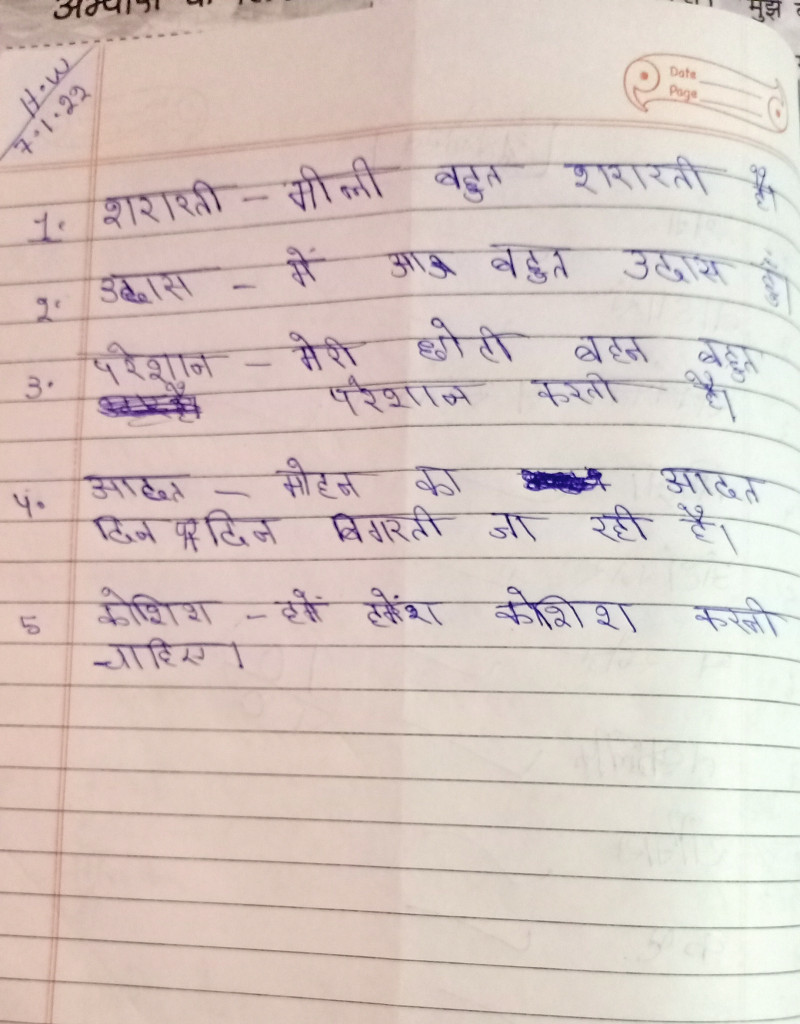 H.W
7.1.22
Date
Page
1. शरारती - मीली बहुत शरारती है।
2. उदास - में आज बहुत उदास हूँ।
3. परेशान - मेरी छोटी बहन बहुत
परेशान करती है।
4. आदत - मोहन का आदत
दिन पर दिन बिगरती जा रही है।
5 कोशिश - हमें हमेंशा कोशिश करनी
चाहिए।